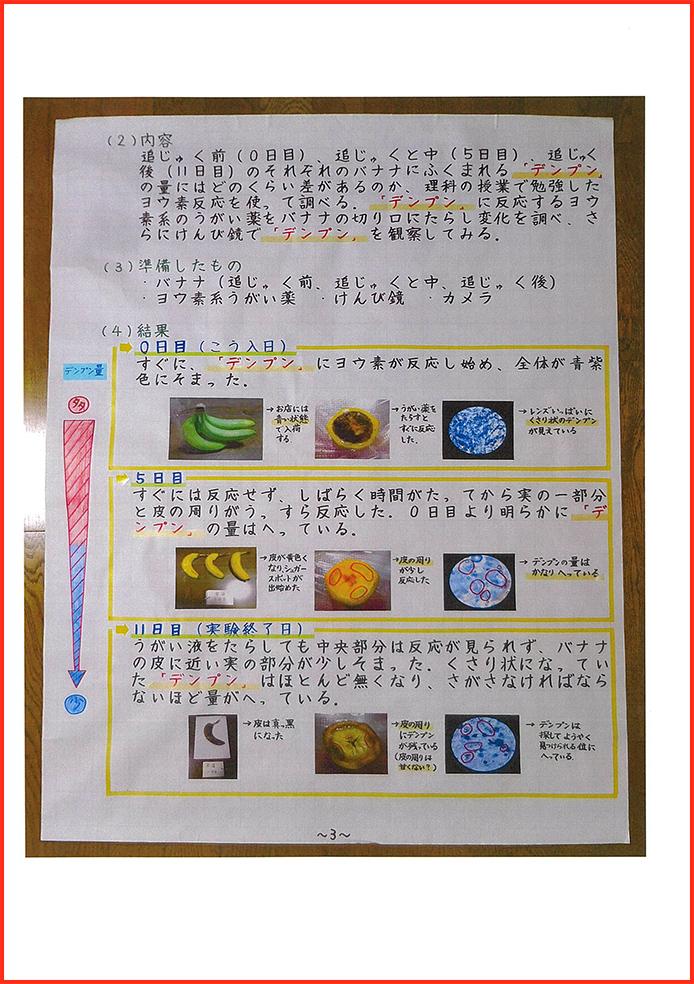 (2)内容
追じゅく前(0日目)、追じゅくと中(5日目)、追じゅく
後(11日目)のそれぞれのバナナにふくまれる「デンプン」
の量にはどのくらい差があるのか、理科の授業で勉強した
ヨウ素反応を使って調べる。「デンプン」に反応するヨウ
素系のうがい薬をバナナの切り口にたらし変化を調べ、さ
らにけんび鏡で「デンプン」を観察してみる。
(3)準備したもの
・バナナ(追じゅく前、追じゅくと中、追じゅく後)
・ヨウ素系うがい薬 ・けんび鏡 ・カメラ
(4)結果
デンプン量
多
少
0日目(こう入日)
すぐに、「デンプン」にヨウ素が反応し始め、全体が青紫
色にそまった。
→お店には
青い状態
で入荷
する。
→うがい薬を
たらすと
すぐに反応
した。
→レンズいっぱいに
くさり状のデンプン
が見えている
5日目
すぐには反応せず、しばらく時間がたってから実の一部分
と皮の周りがうっすら反応した。0日目より明らかに「デ
ンプン」の量はへっている。
→皮が黄色く
なり、シュガー
スポットが
出始めた
→皮の周り
が少し
反応した
→デンプンの量は
かなりへっている
11日目(実験終了日)
うがい液をたらしても中央部分は反応が見られず、バナナ
の皮に近い実の部分が少しそまった。くさり状になってい
た「デンプン」はほとんど無くなり、さがさなければなら
ないほど量がへっている。
→皮は真っ黒
になった
→皮の周り
にデンプン
が残っている
(皮の周りは
甘くない?)
→デンプンは
探してようやく
見つけられる位に
へっている。
~3~